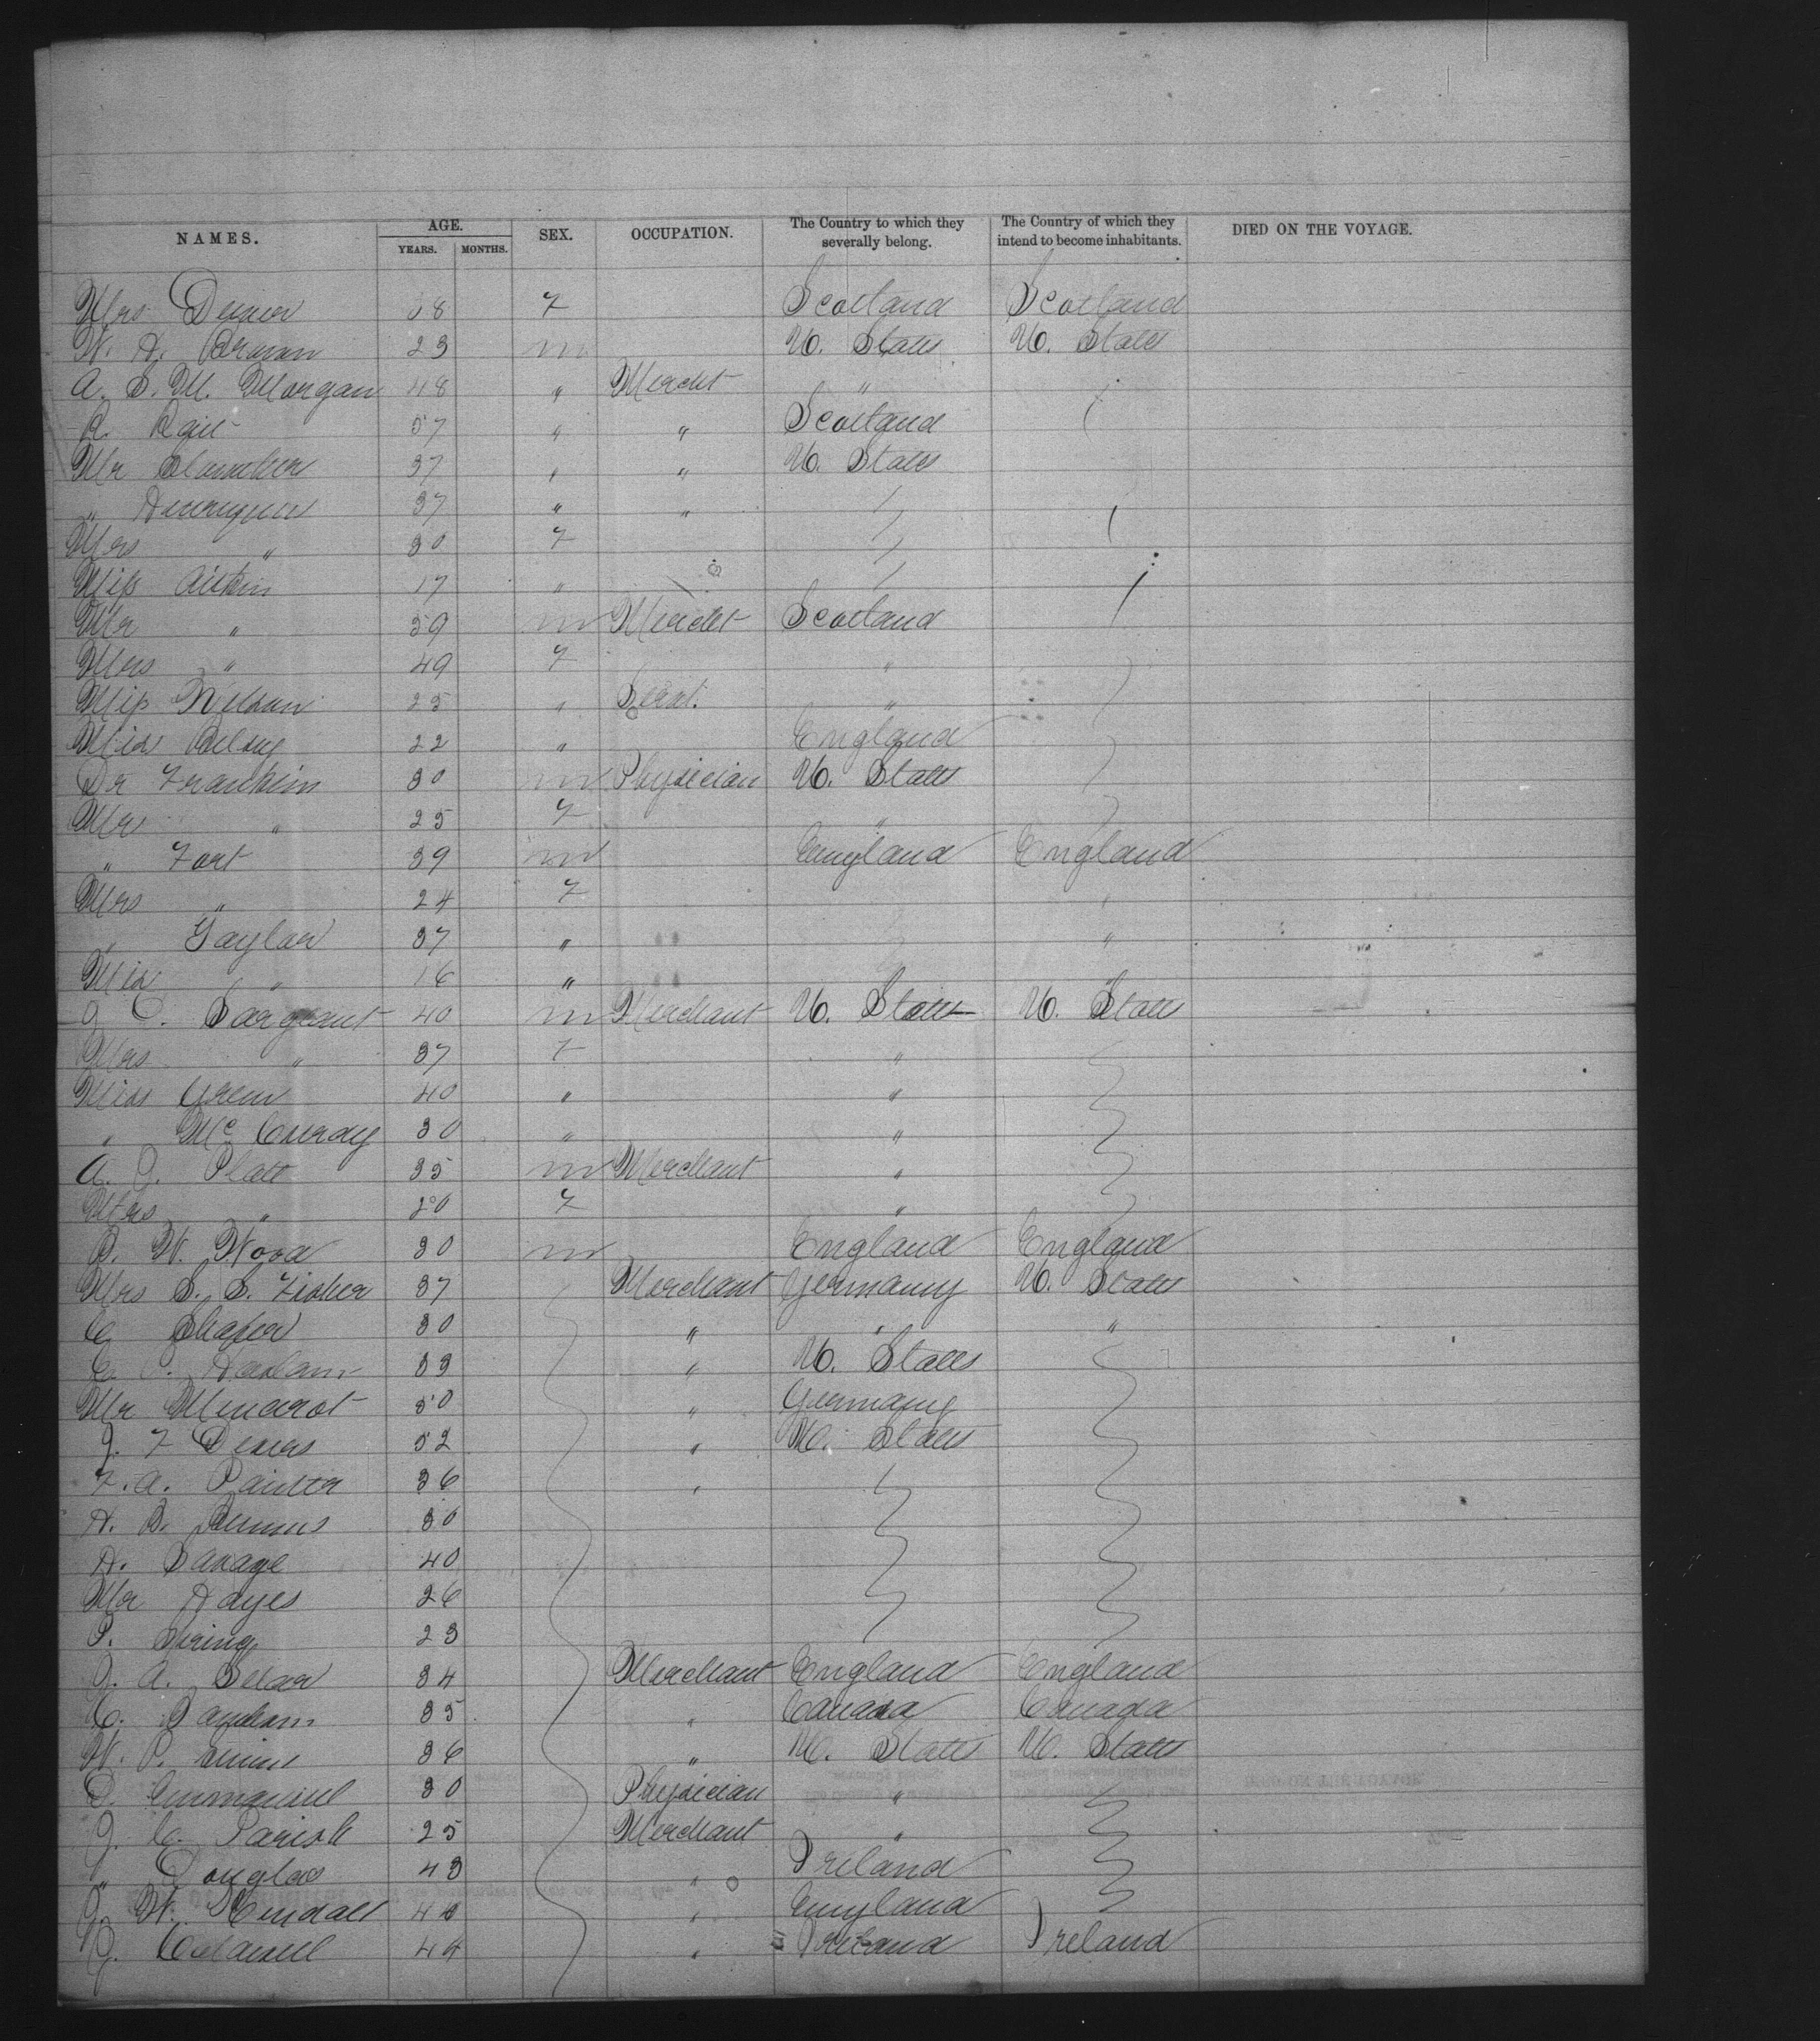 NAMES. AGE. YEARS. MONTHS. SEX. OCCUPATION. The Country to which they severally belong. The Country of which they intend to become inhabitants. DIED ON THE VOYAGE.
Mrs 7 Scotland Scotland
W. H. Brown 23 m U. States U. States
A. S. M. Morgan 48 " Mercht "
R. Rait 57 " " Scotland
Mr 37 " " U. States
" 37 " "
Mrs " 30 7
Miss Aitkin 17 "
Mr " 59 m Mercht Scotland
Mrs " 49 7 "
Miss Nelson 25 " Servt. "
Miss 22 " England
Dr Franklin 30 m Physician U. States
Mrs " 25 7 "
" Fort 39 m England England
Mrs " 24 7 "
" Gaylor 37 " "
Miss " 16 "
J. C. Sargeant 40 m Merchant U. States U. States
Mrs " 37 7 "
Miss Green 40 " "
" Mc Curdy 30 " "
A. G. Platt 35 m Merchant "
Mrs " 7 "
W. Wood 30 m England England
Mrs S. S. Fisher 37 Merchant Germany U. States
C. Shafer 30 " " "
C. Haslam 33 " U. States
Mr 50 " Germany
J. F 52 " U. States
F. A. Painter 36 "
H. B. 30
H. Savage 40
Mr Hayes 26
P. Spring 23
J. A. 34 Merchant England England
C. 35 " Canada Canada
W. P. 36 " U. States U. States
D. Emmanuel 30 Physician "
J. C. Parish 25 Merchant "
" Douglas 43 " Ireland
J. W. Kendall " England
44 " Ireland Ireland